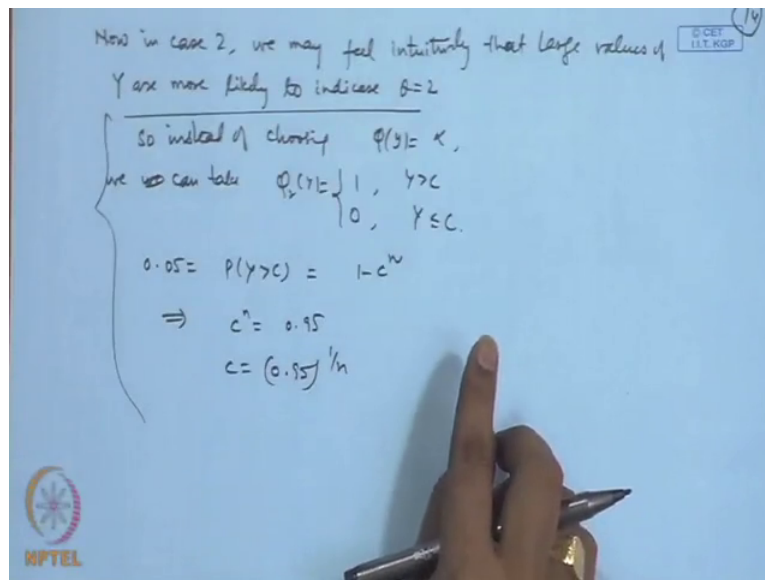 14
© CET
I.I.T. KGP
Now in case 2, we may feel intuitively that large values of
Y are more likely to indicate θ=2
so instead of choosing φ(y)= α,
we can take φ₂(Y)= { 1, Y>c
0, Y≤c.
0.05= P(Y>c) = 1-cⁿ
⇒ cⁿ= 0.95
c= (0.95)^1/n
NPTEL